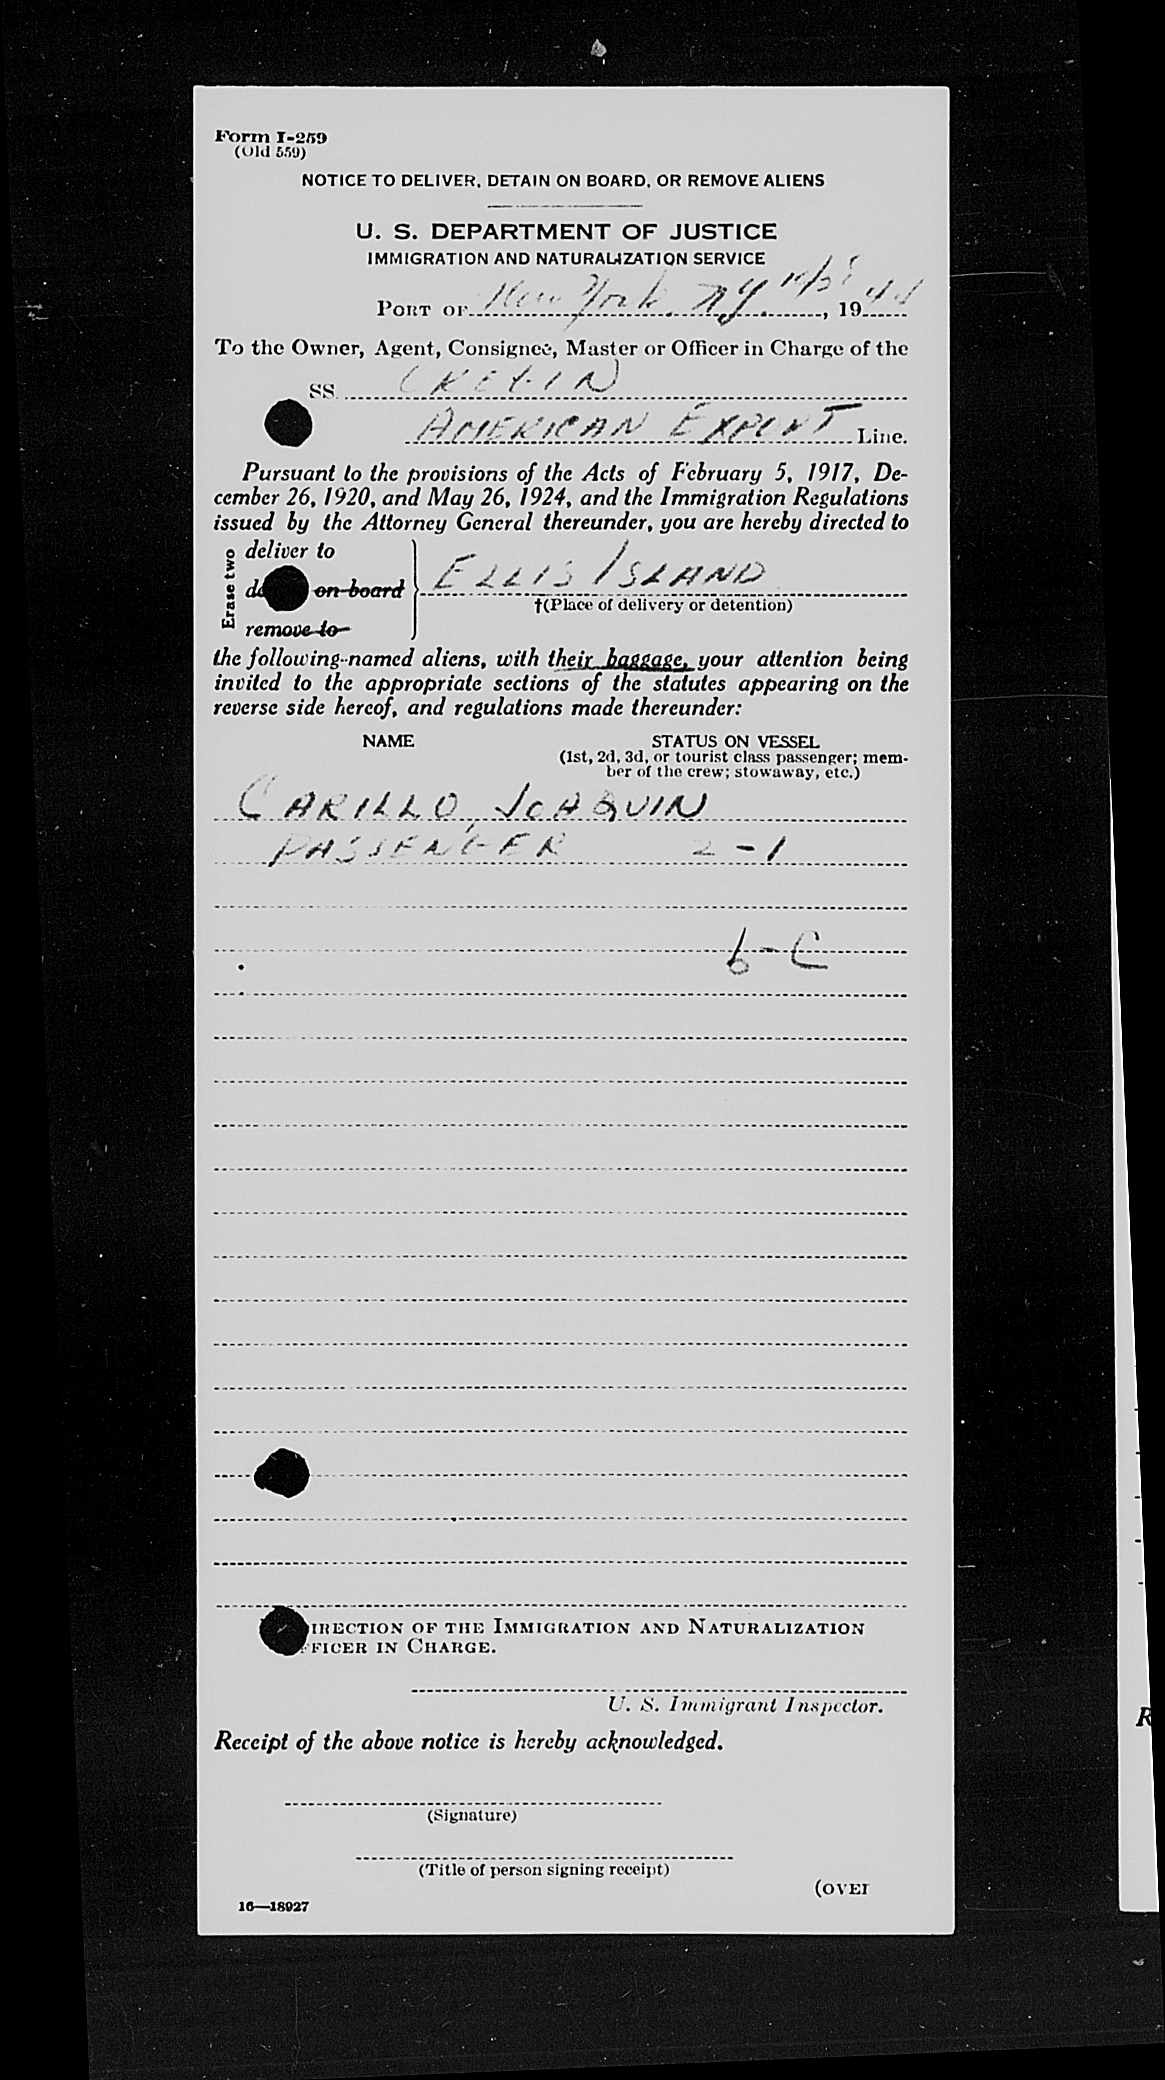 Form I-259
(Old 559)
NOTICE TO DELIVER, DETAIN ON BOARD, OR REMOVE ALIENS
U. S. DEPARTMENT OF JUSTICE
IMMIGRATION AND NATURALIZATION SERVICE
PORT OF New York, NY. , 1944
To the Owner, Agent, Consignee, Master or Officer in Charge of the
SS.
AMERICAN EXPORT Line.
Pursuant to the provisions of the Acts of February 5, 1917, De-
cember 26, 1920, and May 26, 1924, and the Immigration Regulations
issued by the Attorney General thereunder, you are hereby directed to
Erase two
deliver to
on board
remove to
ELLIS ISLAND
†(Place of delivery or detention)
the following-named aliens, with their baggage, your attention being
invited to the appropriate sections of the statutes appearing on the
reverse side hereof, and regulations made thereunder:
NAME STATUS ON VESSEL
(1st, 2d, 3d, or tourist class passenger; mem-
ber of the crew; stowaway, etc.)
CARILLO, JOAQUIN
PASSENGER 2-1
6-C
IRECTION OF THE IMMIGRATION AND NATURALIZATION
FFICER IN CHARGE.
U. S. Immigrant Inspector.
Receipt of the above notice is hereby acknowledged.
(Signature)
(Title of person signing receipt)
(OVER
16—18927
R